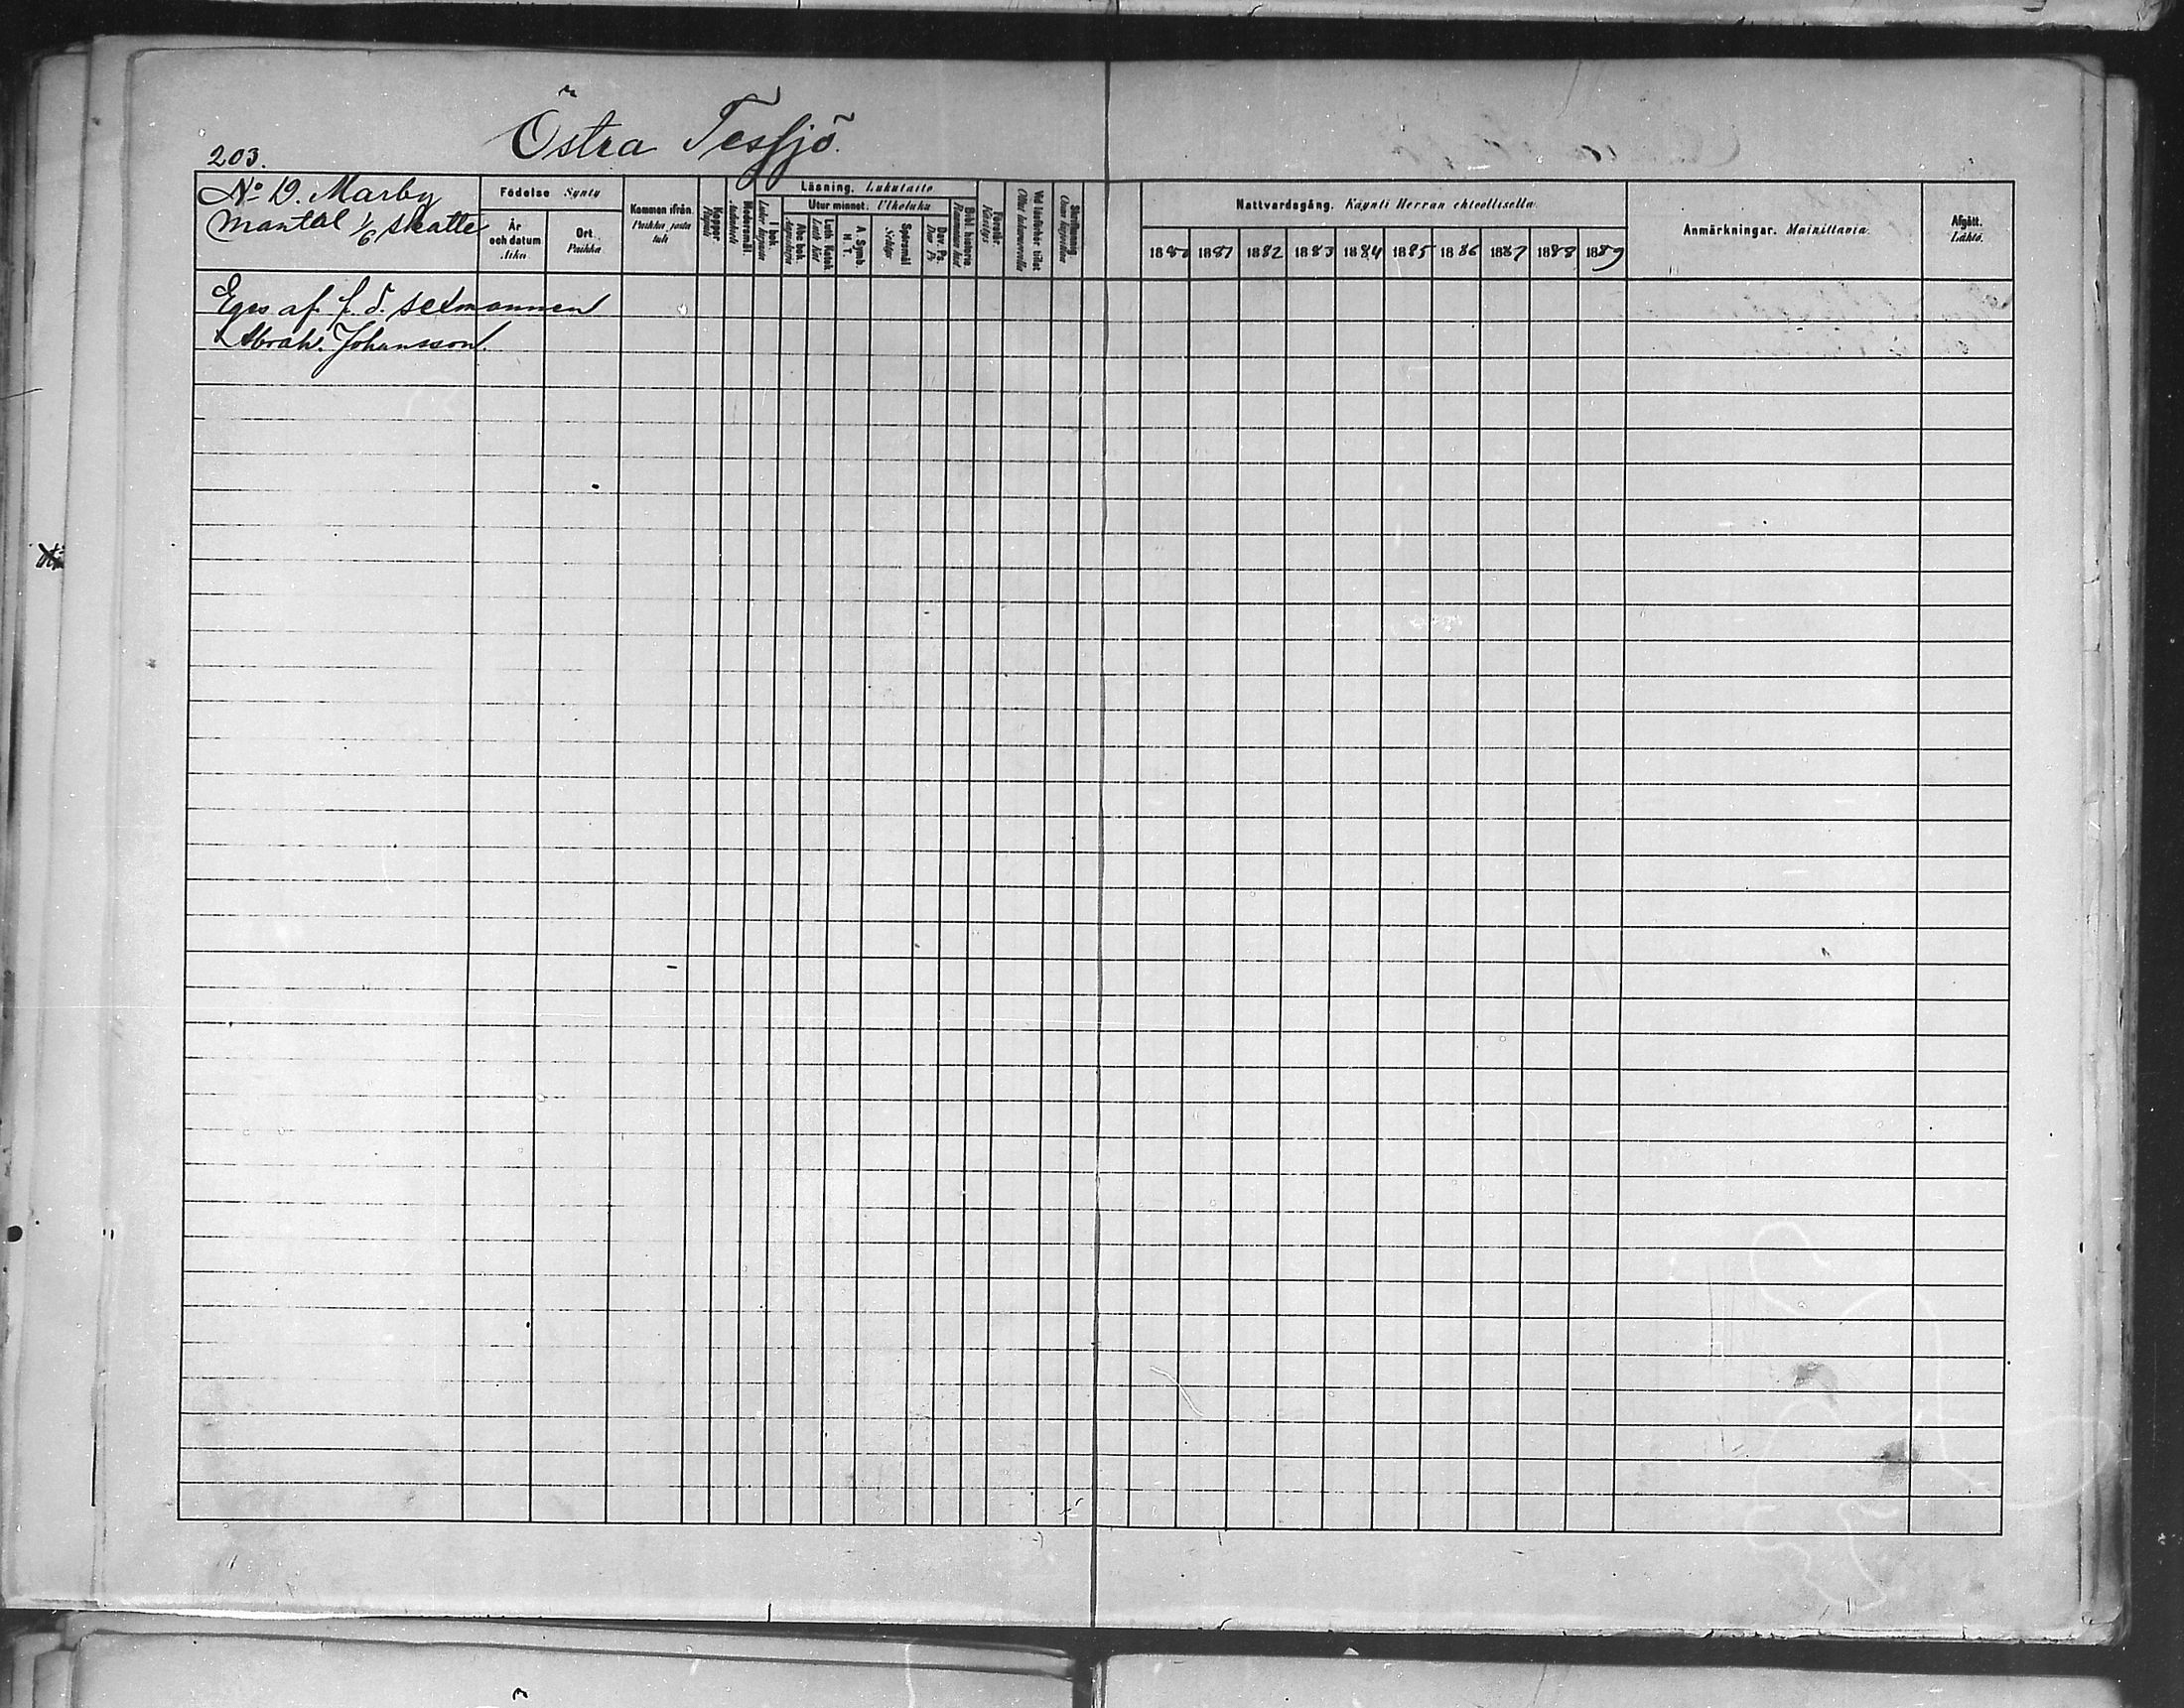 Östra Tessjö.
203.
No 19. Marby
Mantal 1/6 skatte
Födelse Synty
År och datum Aika
Ort. Paikka
Kommen ifrån. Paikka, josta tuli
Koppor Rupuli
Modersmål.
Läsning. Lukutaito
I bok
Utur minnet. Ulkoluku
Abc bok
Luth. Katek
A. Symb. H. T.
Spörsmål
Dav. Ps. Dav. Ps.
Bibl. historia
Förstår. Käsitys
Nattvardsgång. Käynti Herran ehtoollisella.
1880 1881 1882 1883 1884 1885 1886 1887 1888 1889
Anmärkningar. Mainittavia.
Afgått. Lähtö.
Eges af f. d. sexmannen
Abrah. Johansson.